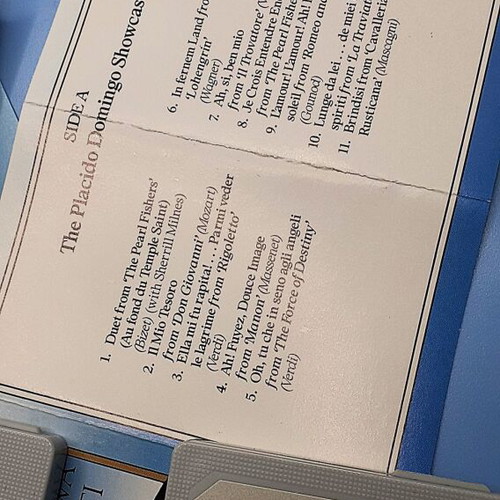 SIDE A
The Placido Domingo Showcas
1. Duet from 'The Pearl Fishers'
(Au fond du Temple Saint)
(Bizet) (with Sherrill Milnes)
2. Il Mio Tesoro
from 'Don Giovanni' (Mozart)
3. Ella mi fu rapita! . . . Parmi veder
le lagrime from 'Rigoletto'
(Verdi)
4. Ah! Fuyez, Douce Image
from 'Manon' (Massenet)
5. Oh, tu che in seno agli angeli
from 'The Force of Destiny'
(Verdi)
6. In fernem Land fro
'Lohengrin'
(Wagner)
7. Ah, si, ben mio
from 'Il Trovatore' (V
8. Je Crois Entendre En
from 'The Pearl Fishe
9. L'amour! L'amour! Ah! l
soleil from 'Romeo and
(Gounod)
10. Lunge da lei . . . de miei
spiriti from 'La Travia
11. Brindisi from 'Cavalleria
Rusticana' (Mascagni)